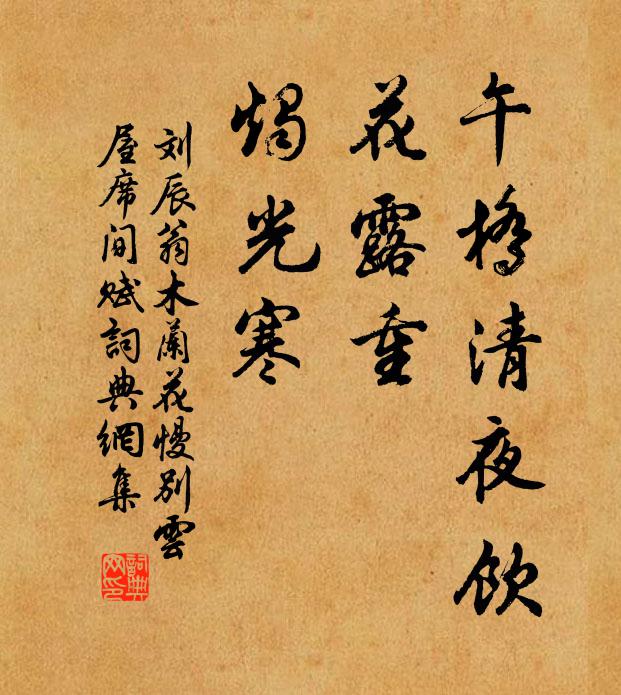 午橋清夜飲
花露重
燭光寒
刘辰翁木蘭花慢别雲
屋席间赋詞典網集
詞典
网印